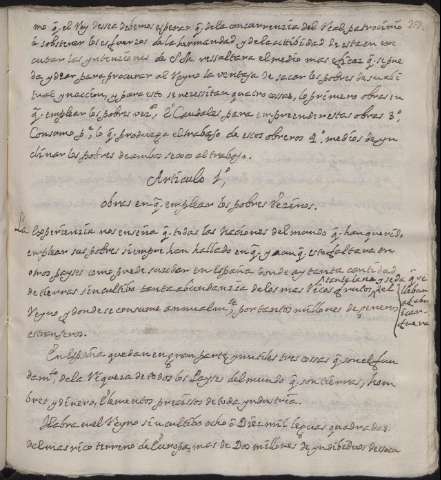 mo q̃. el Rey desea debemos esperar q̃. de la concurrencia del Real patrocinio
à sobstener los esfuerzos de la hermandad y de la actibidad de esta en exe
cutar las yntenciones de S.M. resaltara el medio mas eficaz q̃. se pue
da, ydear para procurar al Reyno la ventaja de sacar los pobres de su
y naccion, y para esto se necesitan quatro cosas, lo primero obras en
q̃. emplear los pobres 2º. Caudales para emprender estas obras 3º.
Consumo p.ª lo q̃. produzca el trabajo de estos obreros 4º. medios de yn
clinar los pobres de ambos sexos al trabajo.
Articulo 1º,
obras en q̃. emplear los pobres
La Esperiencia nos enseña q̃. todas las Naciones del mundo q̃. han querido
emplear sus pobres siempre han hallado en q̃. y aunq̃. esto faltara en
otros payses como puede suceder en España donde ay tanta cantidad
de tierras sin cultibo tanta abundancia de las mas Ricas
Reyno y donde se consume annualm.te por tantos millones de generos
estrangeros.
En España quedan en gran parte ynutiles tres cosas q̃. son el fun
dam.to de la Riqueza de todos los Payses del mundo q̃. son tierras, hom
bres y dinero, elementos precisos de toda yndustria.
Habra en el Reyno sin cultibo ocho ò Diez mil leguas quadradas
del mas rico terreno de Europa, mas de Dos millones de yndibiduos desocu